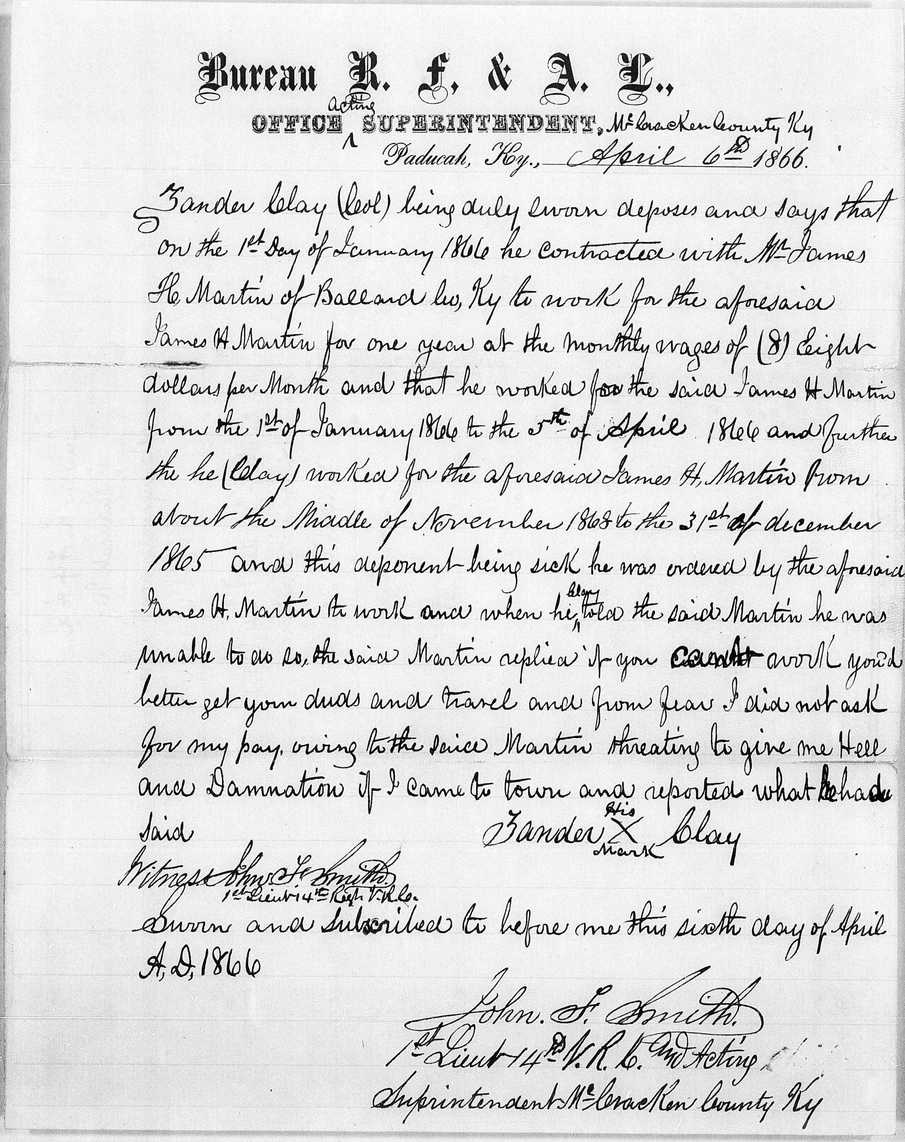 Bureau R. F. & A. L.,
OFFICE Acting SUPERINTENDENT, McCracken County Ky
Paducah, Ky., April 6th 1866.
Zander Clay (Col) being duly sworn deposes and says that
on the 1st Day of January 1866 he contracted with Mr James
H. Martin of Ballard Co, Ky to work for the aforesaid
James H Martin for one year at the monthly wages of (8) Eight
dollars per Month and that he worked for the said James H Martin
from the 1st of January 1866 to the 5th of April 1866 and further
the he (Clay) worked for the aforesaid James H, Martin from
about the Middle of November 1865 to the 31st of december
1865 and this deponent being sick he was ordered by the aforesaid
James H, Martin to work and when he Clay told the said Martin he was
unable to do so, the said Martin replied if you cant work you'd
better get your duds and travel and from fear I did not ask
for my pay, owing to the said Martin threating to give me Hell
and Damnation if I came to town and reported what he had
said
Zander His X Mark Clay
Witness John F. Smith
1st Lieut 14th Regt V.R.C.
Sworn and Subscribed to before me this sixth day of April
A,D, 1866
John. F. Smith.
1st Lieut 14th V. R. C. and Acting
Suprintendent McCracken County Ky